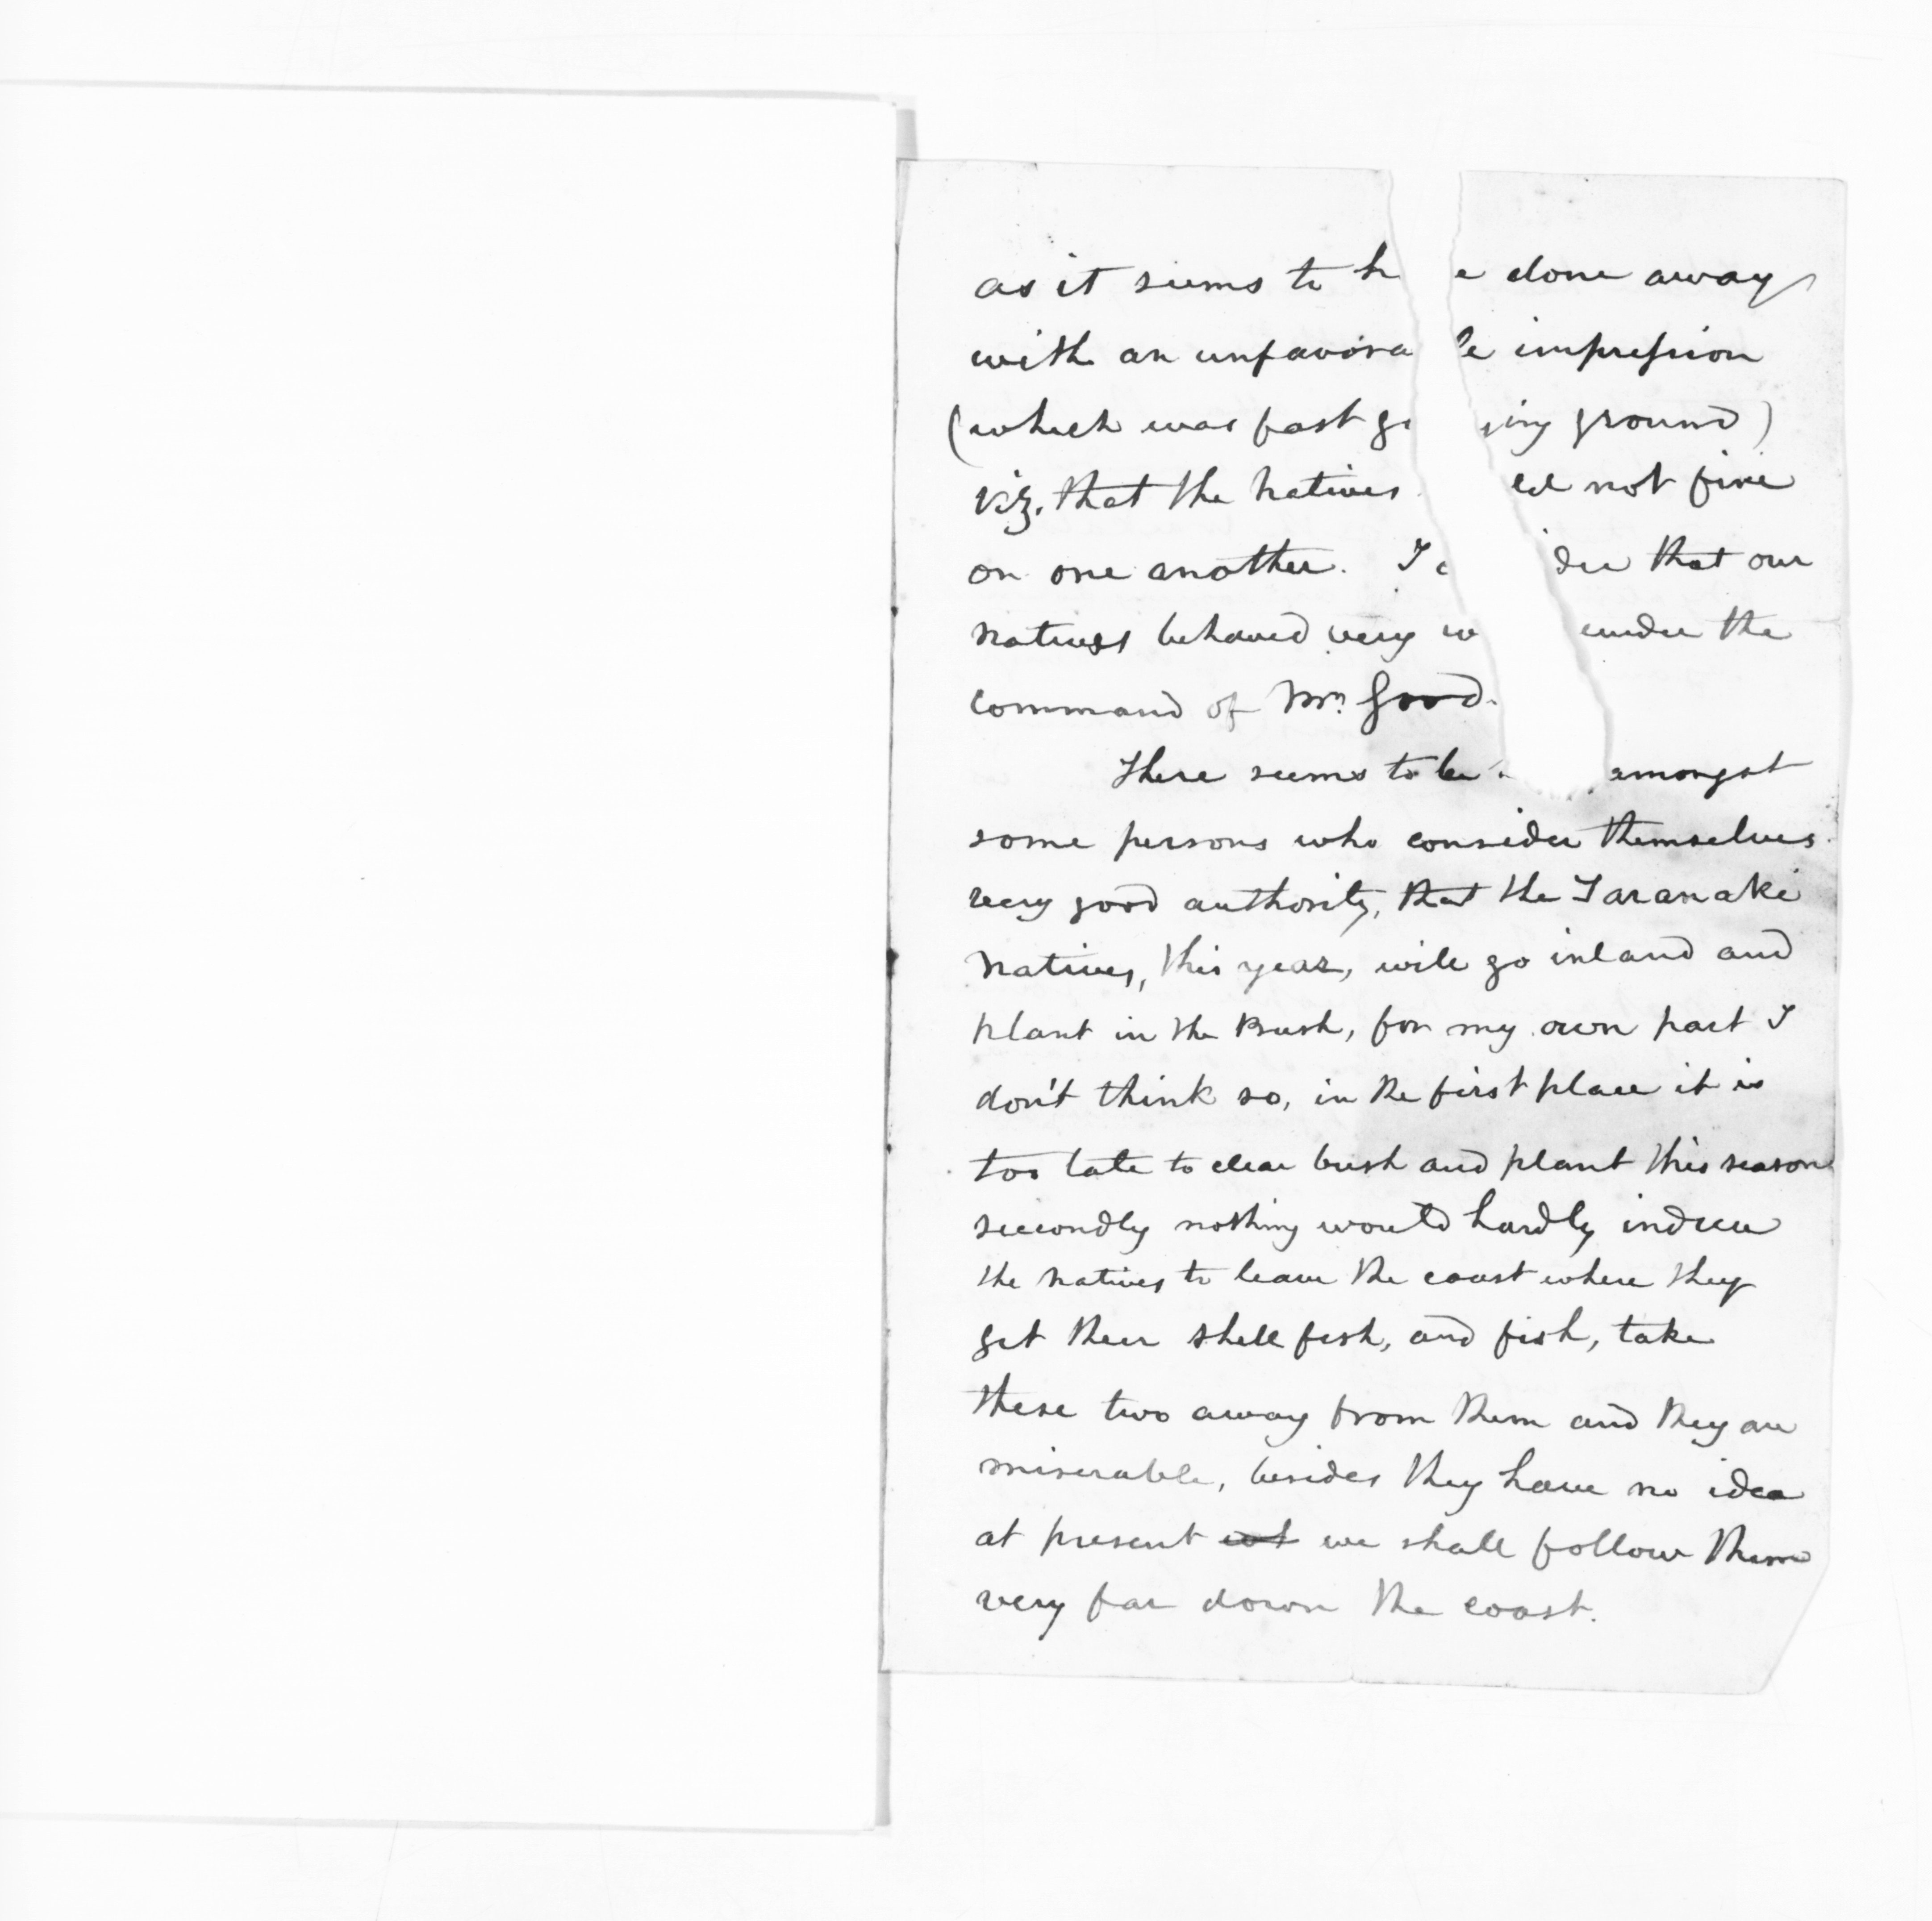 as it seems to h e done away
with an unfavora le impression
(which was fast ga ning ground)
viz. that the Natives ld not fire
on one another. I c der that our
Natives behaved very w under the
command of Mr. Good.
There seems to be amongst
some persons who consider themselves
very good authority, that the Taranaki
Natives, this year, will go inland and
plant in the Bush, for my own part I
don't think so, in the first place it is
too late to clear bush and plant this season
secondly nothing would hardly induce
the Natives to leave the coast where they
get their shell fish, and fish, take
these two away from them and they are
miserable, besides they have no idea
at present we shall follow them
very far down the coast.